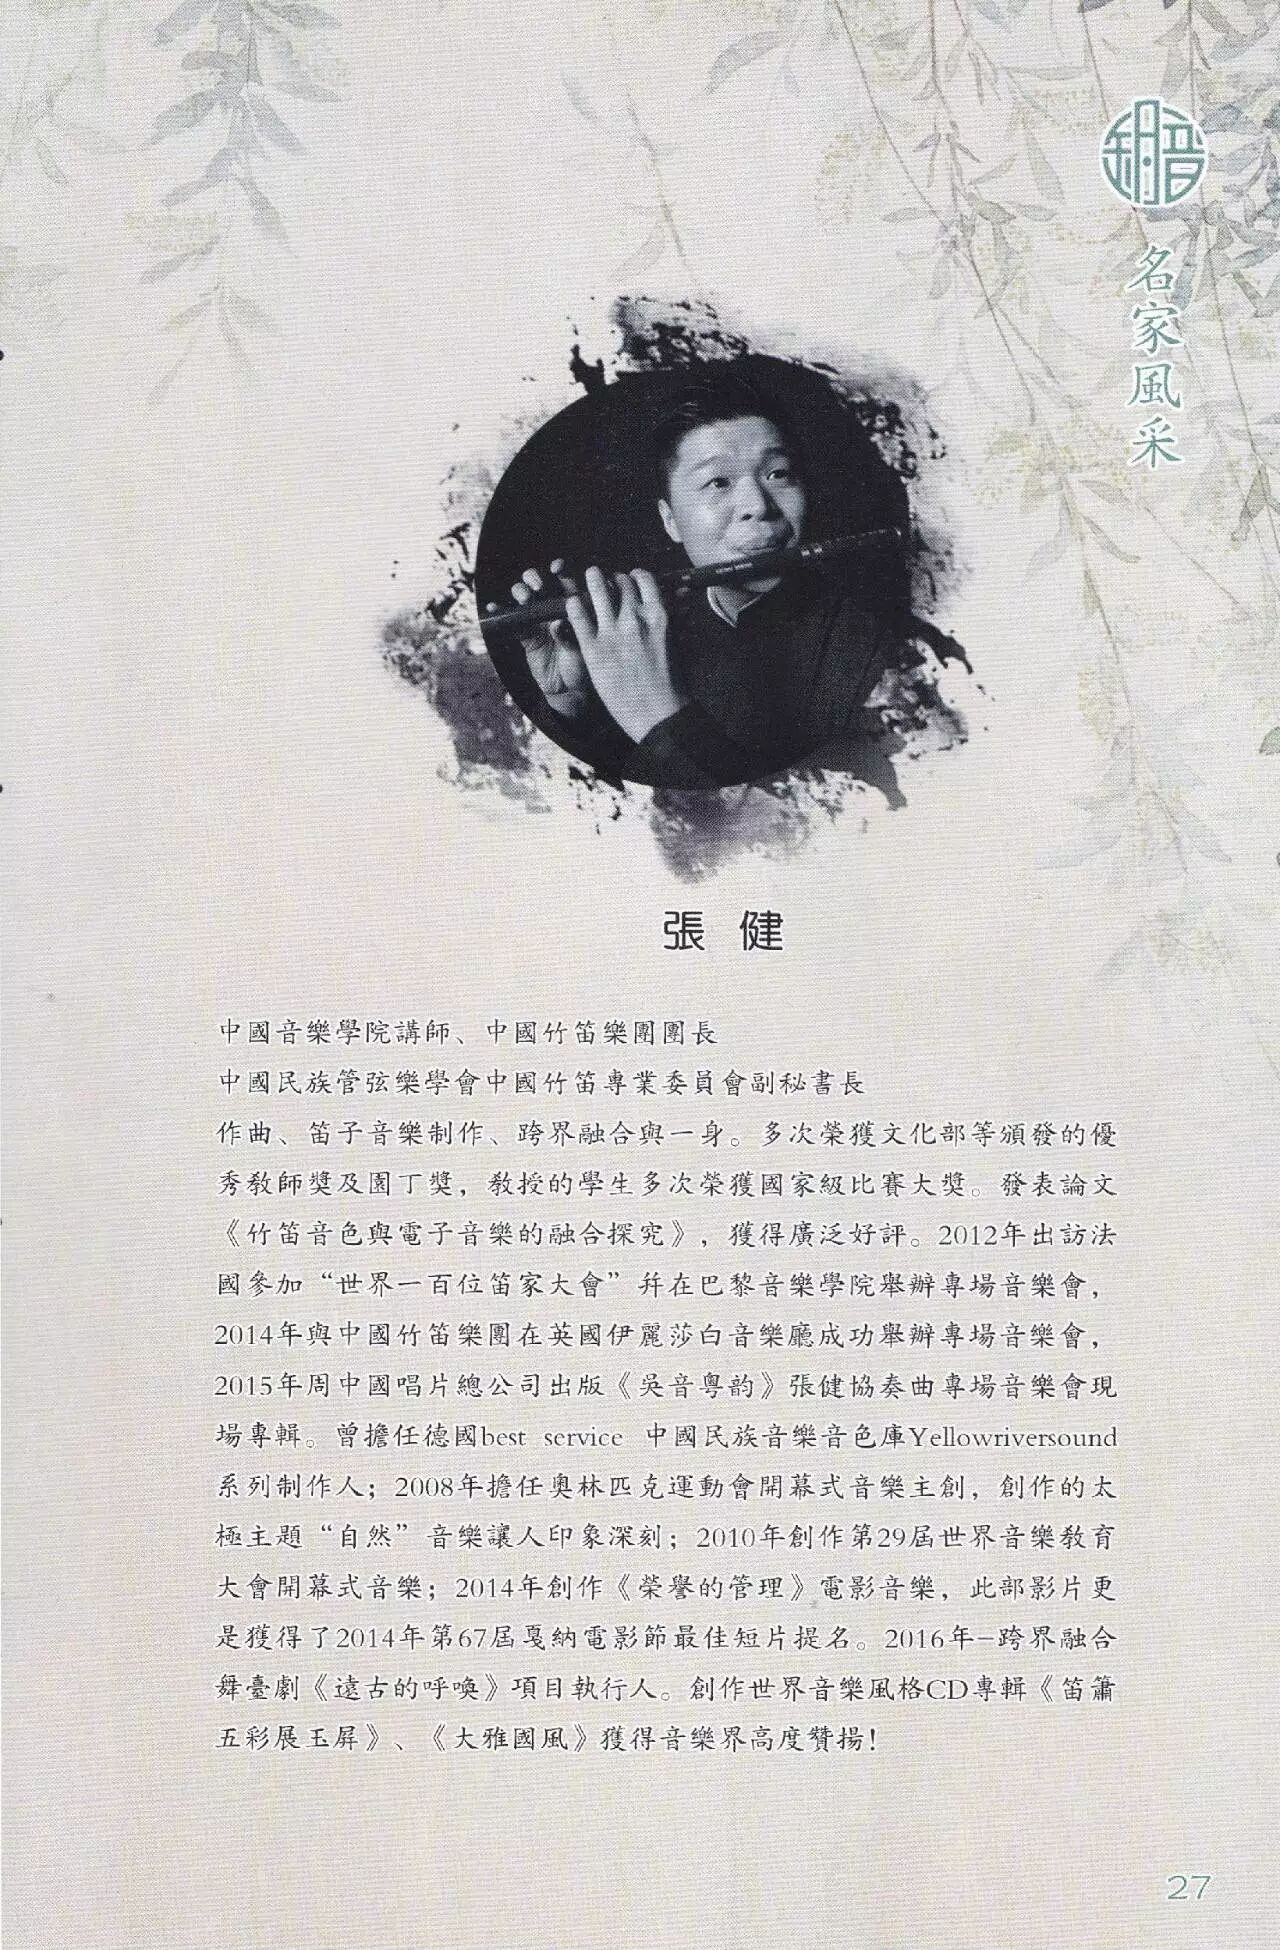 名家風采
張 健
中國音樂學院講師、中國竹笛樂團團長
中國民族管弦樂學會中國竹笛專業委員會副秘書長
作曲、笛子音樂制作、跨界融合與一身。多次榮獲文化部等頒發的優
秀教師獎及園丁獎，教授的學生多次榮獲國家級比賽大獎。發表論文
《竹笛音色與電子音樂的融合探究》，獲得廣泛好評。2012年出訪法
國參加“世界一百位笛家大會”并在巴黎音樂學院舉辦專場音樂會，
2014年與中國竹笛樂團在英國伊麗莎白音樂廳成功舉辦專場音樂會，
2015年周中國唱片總公司出版《吳音粵韵》張健協奏曲專場音樂會現
場專輯。曾擔任德國best service 中國民族音樂音色庫Yellowriversound
系列制作人；2008年擔任奧林匹克運動會開幕式音樂主創，創作的太
極主題“自然”音樂讓人印象深刻；2010年創作第29屆世界音樂教育
大會開幕式音樂；2014年創作《榮譽的管理》電影音樂，此部影片更
是獲得了2014年第67屆戛納電影節最佳短片提名。2016年-跨界融合
舞臺劇《遠古的呼喚》項目執行人。創作世界音樂風格CD專輯《笛簫
五彩展玉屏》、《大雅國風》獲得音樂界高度贊揚！
27